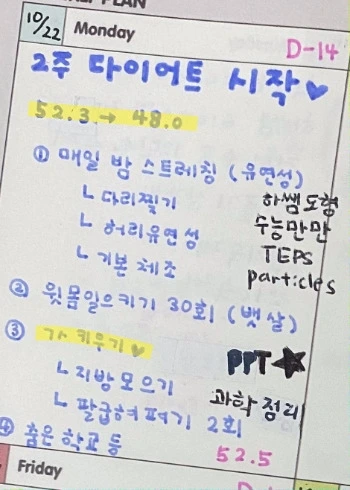 PLAN
10/22 Monday
D-14
2주 다이어트 시작♥
52.3 → 48.0
① 매일 밤 스트레칭 (유연성)
ㄴ 다리찢기
ㄴ 허리유연성
ㄴ 기본 체조
하쌤 도형
수능만만
TEPS
particles
② 윗몸일으키기 30회 (뱃살)
③ 가 키우기♥
ㄴ 지방 모으기
ㄴ 팔굽혀 펴기 2회
PPT★
과학 정리
④ 춤은 학교 등
52.5
Friday